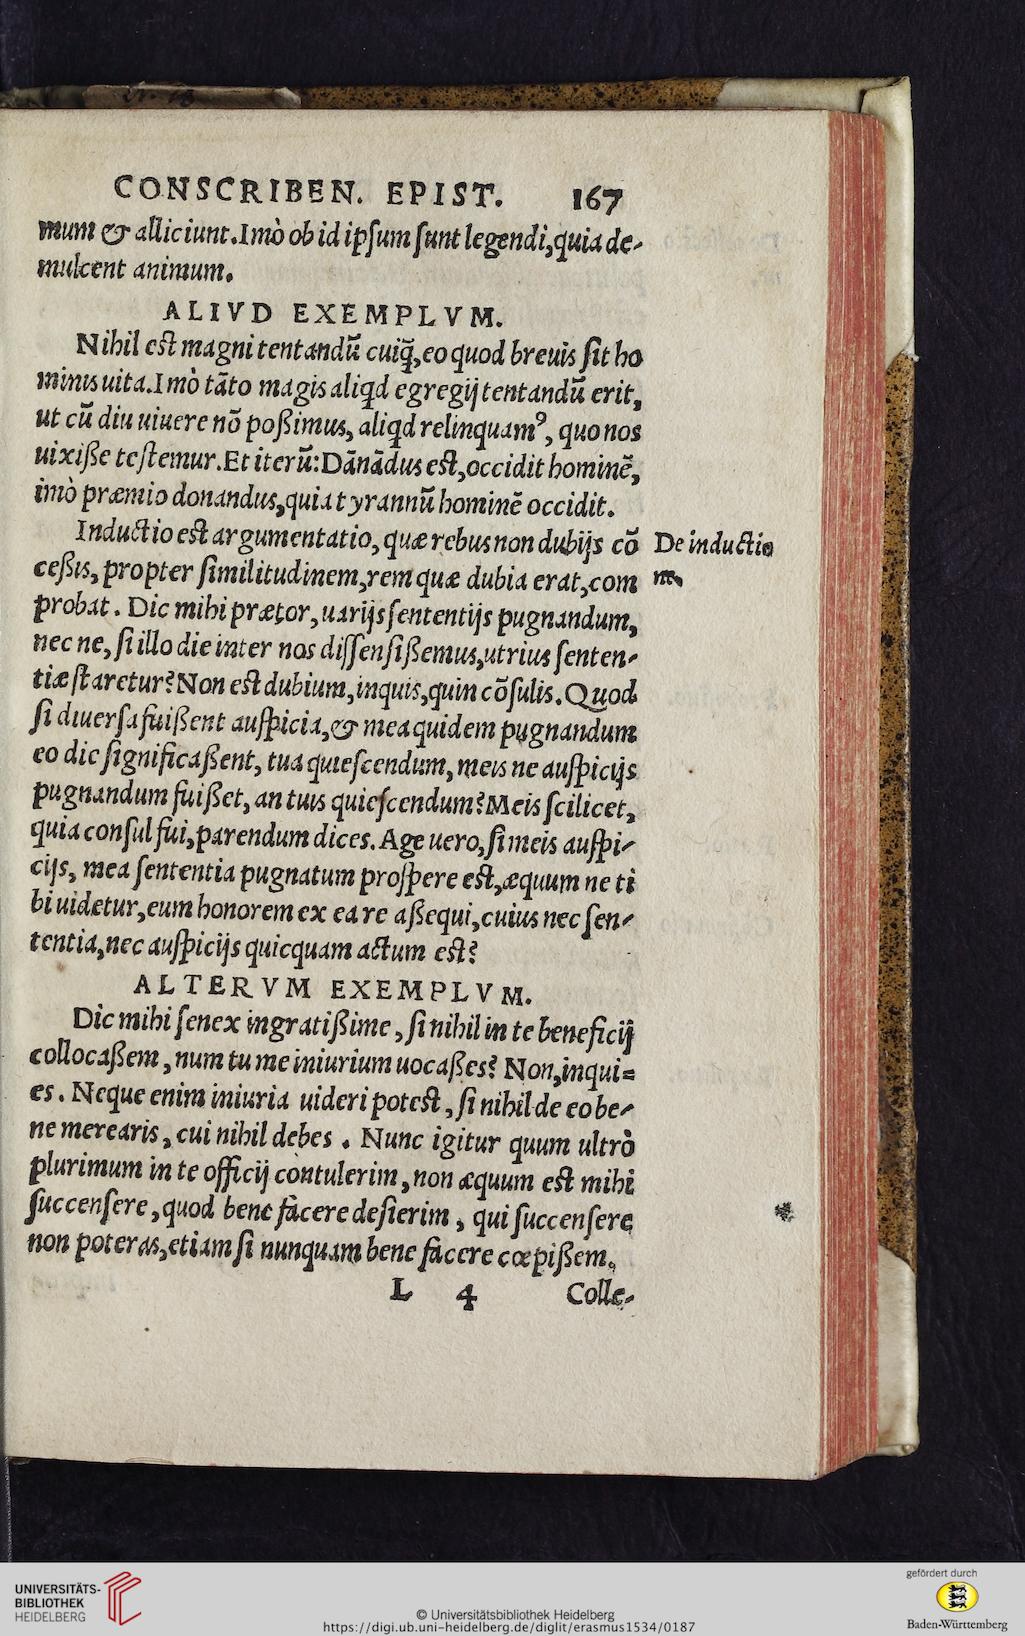 CONSCRIBEN. EPIST. 167
mum & alliciunt. Imò ob id ipſum ſunt legendi, quia de-
mulcent animum.
ALIVD EXEMPLVM.
Nihil est magni tentandū cuiq̃, eo quod breuis ſit ho
minis uita. Imò tāto magis aliqd egregij tentandū erit,
ut cū diu uiuere nō poßimus, aliqd relinquamꝰ, quo nos
uixiße teſtemur. Et iterū: Dānādus est, occidit hominē,
imò præmio donandus, quia tyrannū hominē occidit.
Inductio est argumentatio, quæ rebus non dubijs cō
ceßis, propter ſimilitudinem, rem quæ dubia erat, com
probat. Dic mihi prætor, uarijs ſententijs pugnandum,
nec ne, ſi illo die inter nos diſſenſißemus, utrius ſenten-
tiæ ſtaretur? Non est dubium, inquis, quin cōſulis. Quod
ſi diuerſa fuißent auſpicia, & mea quidem pugnandum
eo die ſignificaßent, tua quieſcendum, meis ne auſpicijs
pugnandum fuißet, an tuis quieſcendum? Meis ſcilicet,
quia conſul fui, parendum dices. Age uero, ſi meis auſpi-
cijs, mea ſententia pugnatum proſpere est, æquum ne ti
bi uidetur, eum honorem ex ea re aßequi, cuius nec ſen-
tentia, nec auſpicijs quicquam actum est?
De inductio
ne.
ALTERVM EXEMPLVM.
Dic mihi ſenex ingratißime, ſi nihil in te beneficij
collocaßem, num tu me iniurium uocaßes? Non, inqui=
es. Neque enim iniuria uideri potest, ſi nihil de eo be-
ne merearis, cui nihil debes. Nunc igitur quum ultrò
plurimum in te officij contulerim, non æquum est mihi
ſuccenſere, quod bene facere deſierim, qui ſuccenſere
non poteras, etiam ſi nunquam bene facere cœpißem.
L 4 Colle-
UNIVERSITÄTS-
BIBLIOTHEK
HEIDELBERG
© Universitätsbibliothek Heidelberg
https://digi.ub.uni-heidelberg.de/diglit/erasmus1534/0187
gefördert durch
Baden-Württemberg